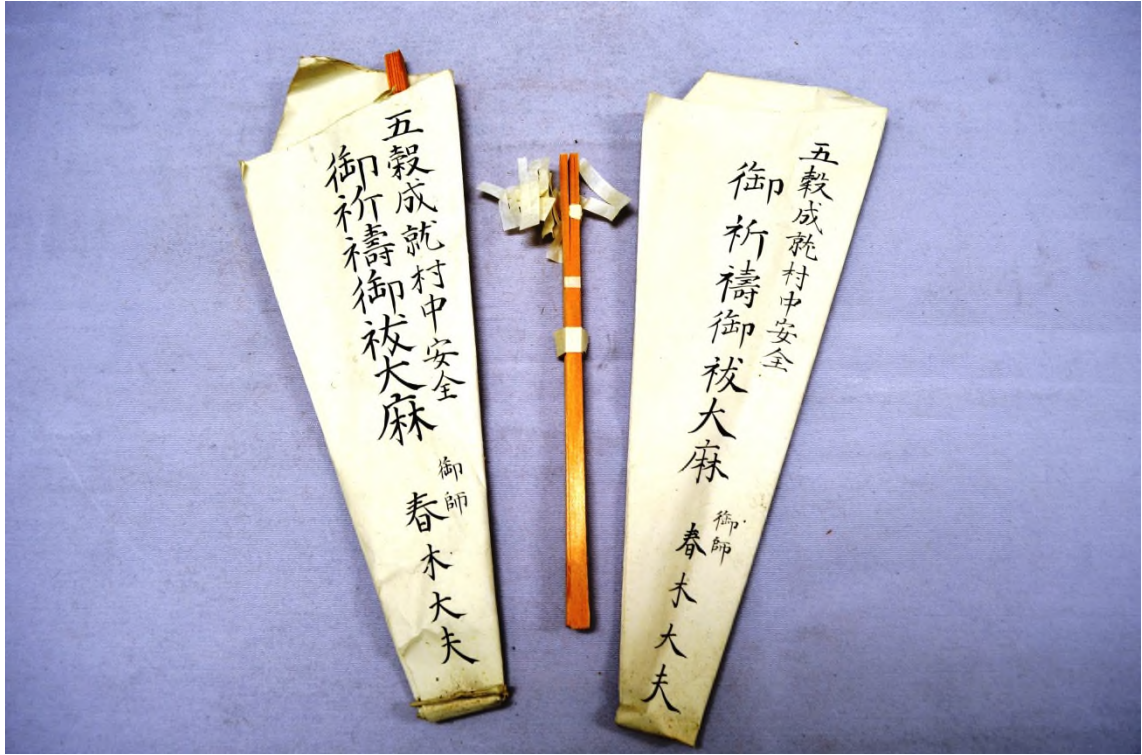 五穀成就村中安全
御祈禱御祓大麻
御師
春木大夫
五穀成就村中安全
御祈禱御祓大麻
御師
春木大夫